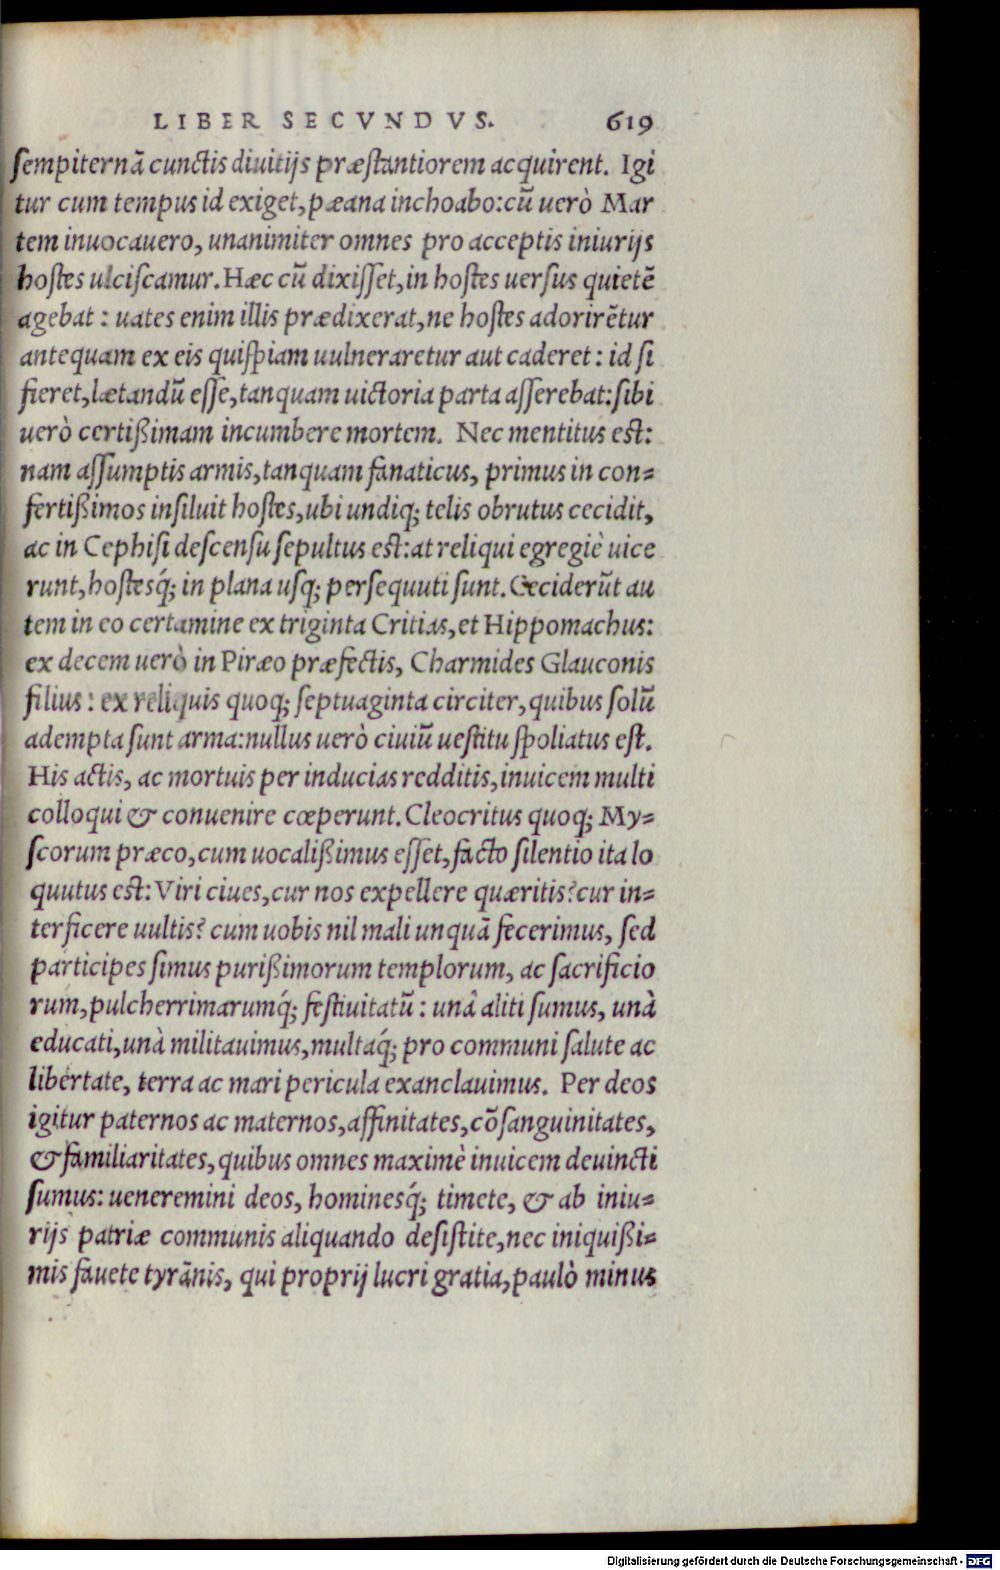 LIBER SECVNDVS. 619
sempiternã cunctis diuitijs præstantiorem acquirent. Igi
tur cum tempus id exiget, pæana inchoabo: cũ uerò Mar
tem inuocauero, unanimiter omnes pro acceptis iniurijs
hostes ulciscamur. Hæc cũ dixisset, in hostes uersus quietẽ
agebat: uates enim illis prædixerat, ne hostes adorirẽtur
antequam ex eis quispiam uulneraretur aut caderet: id si
fieret, lætandũ esse, tanquam uictoria parta asserebat: sibi
uerò certißimam incumbere mortem. Nec mentitus est:
nam assumptis armis, tanquam fanaticus, primus in con=
fertißimos insiluit hostes, ubi undiq; telis obrutus cecidit,
ac in Cephisi descensu sepultus est: at reliqui egregiè uice
runt, hostesq́; in plana usq; persequuti sunt. Ceciderũt au
tem in eo certamine ex triginta Critias, et Hippomachus:
ex decem uerò in Piræo præfectis, Charmides Glauconis
filius: ex reliquis quoq; septuaginta circiter, quibus solũ
adempta sunt arma: nullus uerò ciuiũ uestitu spoliatus est.
His actis, ac mortuis per inducias redditis, inuicem multi
colloqui & conuenire cœperunt. Cleocritus quoq; My=
scorum præco, cum uocalißimus esset, facto silentio ita lo
quutus est: Viri ciues, cur nos expellere quæritis? cur in=
terficere uultis? cum uobis nil mali unquã fecerimus, sed
participes simus purißimorum templorum, ac sacrificio
rum, pulcherrimarumq́; festiuitatũ: unâ aliti sumus, unà
educati, unà militauimus, multaq́; pro communi salute ac
libertate, terra ac mari pericula exanclauimus. Per deos
igitur paternos ac maternos, affinitates, cõsanguinitates,
& familiaritates, quibus omnes maximè inuicem deuincti
sumus: ueneremini deos, hominesq́; timete, & ab iniu=
rijs patriæ communis aliquando desistite, nec iniquißi=
mis fauete tyrãnis, qui proprij lucri gratia, paulò minus
Digitalisierung gefördert durch die Deutsche Forschungsgemeinschaft - DFG